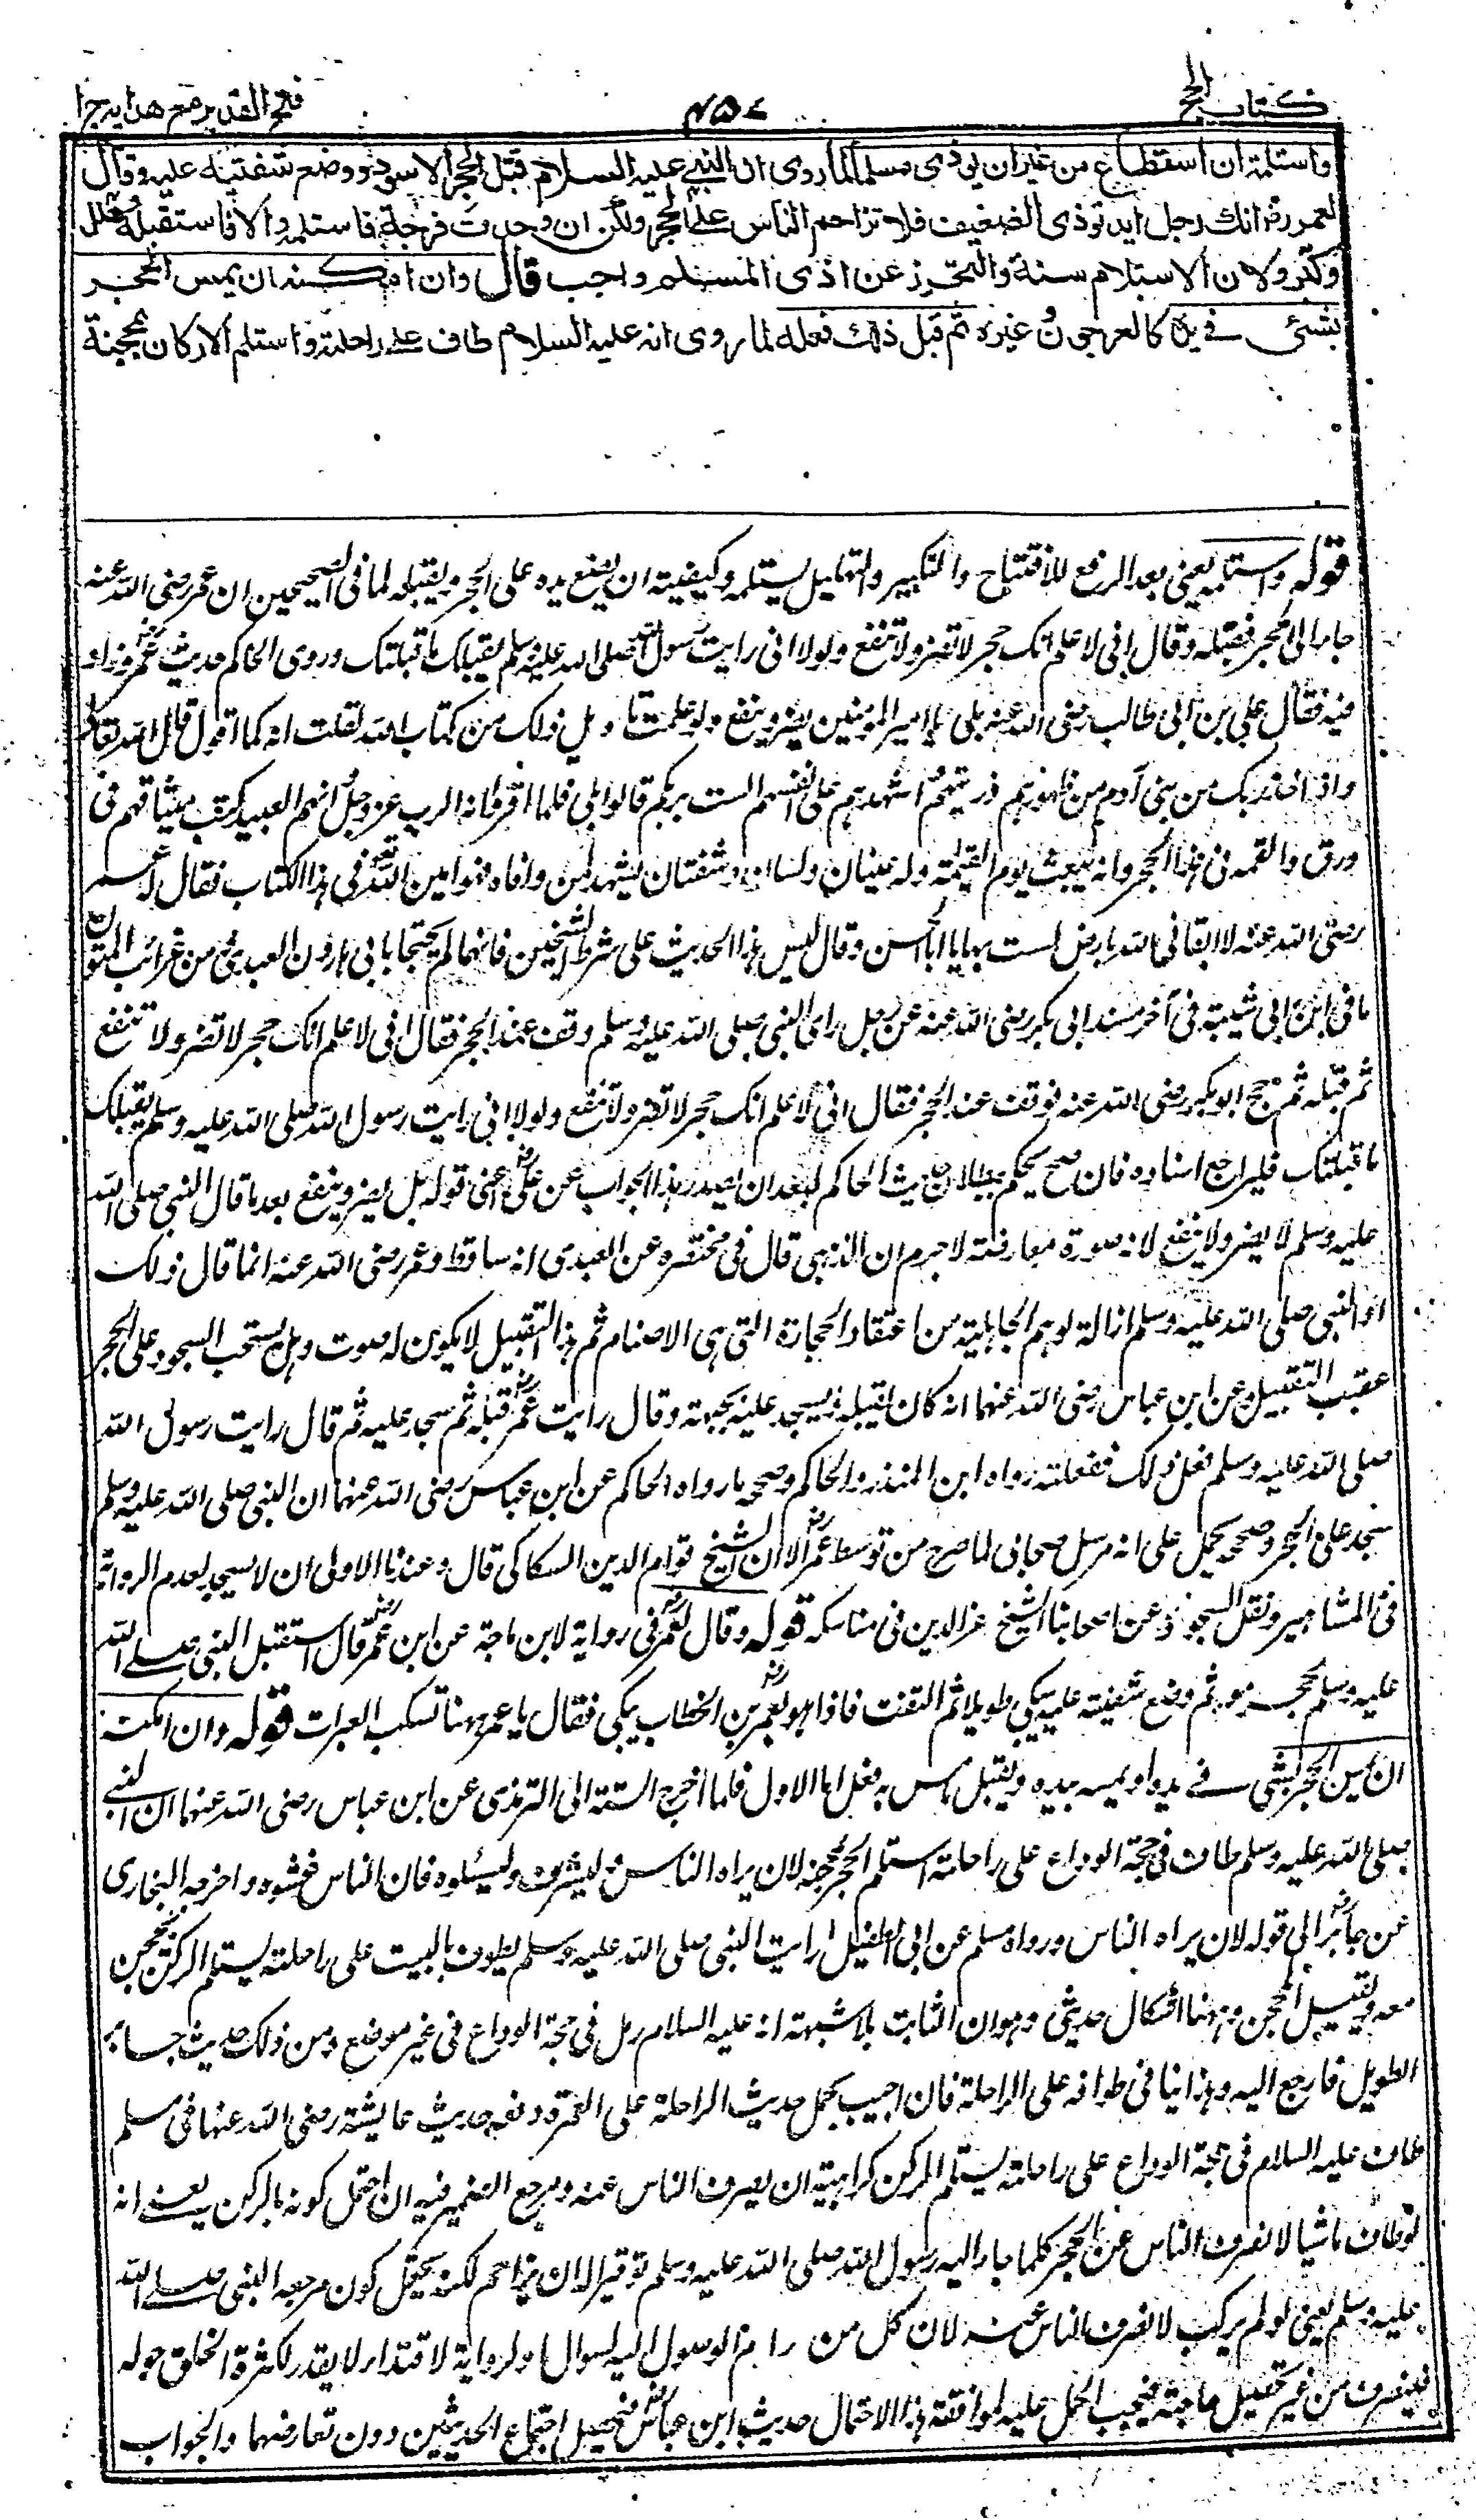 كتاب الحج ۴۵۷ فتح القدير مع هدايه جرا
واستلمه ان استطاع من غير ان يوذى مسلما لما روى ان النبي عليه السلام قبل الحجر الاسود ووضع شفتيه عليه وقال
لعمر رض انك رجل ايد توذى الضعيف فلا تزاحم الناس على الحجر ولكن ان وجدت فرجة فاستلمه والا فاستقبله وهلل
وكبر ولان الاستلام سنة والتحرز عن اذى المسلم واجب قال وان امكنه ان يمس الحجر
بشئ في يده كالعرجون وغيره ثم قبل ذلك فعله لما روى انه عليه السلام طاف على راحلته واستلم الاركان بمحجنه
قوله واستلمه يعني بعد الرفع للافتتاح والتكبير والتهليل يستلمه وكيفيته ان يضع يده على الحجر ويقبله لما فى الصحيحين ان عمر رضى الله عنه
جاء الى الحجر فقبله وقال انى لا علم انك حجر لا تضر ولا تنفع ولولا انى رايت رسول الله صلى الله عليه وسلم يقبلك ما قبلتك وروى الحاكم حديث عمر رض وزاد
فيه فقال على بن ابى طالب رضى الله عنه بلى يا امير المؤمنين يضر وينفع ولو علمت تاويل ذلك من كتاب الله لقلت انه كما اقول قال الله تعالى
واذ اخذ ربك من بنى آدم من ظهورهم ذريتهم واشهدهم على انفسهم الست بربكم قالوا بلى فلما اقروا انه الرب عز وجل وانهم العبيد كتب ميثاقهم فى
ورق والقمه فى هذا الحجر وانه يبعث يوم القيمة وله عينان ولسان وشفتان يشهد لمن وافاه فهو امين الله فى هذا الكتاب فقال له عمر
رضى الله عنه لا ابقانى الله بارض لست بها يا ابا الحسن وقال ليس هذا الحديث على شرط الشيخين فانهما لم يحتجا بابى هارون العبدى ومن غرائب المتون
ما فى ابن ابى شيبة فى آخر مسند ابى بكر رضى الله عنه عن رجل راى النبى صلى الله عليه وسلم وقف عند الحجر فقال انى لا علم انك حجر لا تضر ولا تنفع
ثم قبله ثم حج ابو بكر رضى الله عنه فوقف عند الحجر فقال انى لا علم انك حجر لا تضر ولا تنفع ولولا انى رايت رسول الله صلى الله عليه وسلم يقبلك
ما قبلتك فليراجع اسناده فان صح يحكم ببطلان حديث الحاكم لبعد ان يصدر هذا الجواب عن على رض اعنى قوله بل يضر وينفع بعد ما قال النبى صلى الله
عليه وسلم لا يضر ولا ينفع لانه صورة معارضة لا جرم ان الذهبى قال فى مختصره عن العبدى انه ساقط وعمر رضى الله عنه انما قال ذلك
او النبى صلى الله عليه وسلم ازالة لوهم الجاهلية من اعتقاد الحجارة التى هى الاصنام ثم هذا التقبيل لا يكون له صوت وهل يستحب السجود على الحجر
عقيب التقبيل وعن ابن عباس رضى الله عنهما انه كان يقبله ويسجد عليه بجبهته وقال رايت عمر رض قبله ثم سجد عليه ثم قال رايت رسول الله
صلى الله عليه وسلم فعل ذلك ففعلته رواه ابن المنذر والحاكم وصحه ما رواه الحاكم عن ابن عباس رضى الله عنهما ان النبى صلى الله عليه وسلم
سجد على الحجر وصححه يحمل على انه مرسل صحابى لما صرح من توسط عمر رض الا ان الشيخ قوام الدين السكاكى قال وعندنا الاولى ان لا يسجد لعدم الرواية
فى المشاهير ونقل السجود عن اصحابنا الشيخ عز الدين فى مناسكه قوله وقال لعمر رض فى رواية لابن ماجة عن ابن عمر رض قال استقبل النبى صلى الله
عليه وسلم الحجر ثم وضع شفتيه عليه يبكى طويلا ثم التفت فاذا هو بعمر رض بن الخطاب يبكى فقال يا عمر ههنا تسكب العبرات قوله وان امكنه
ان يمس الحجر بشئ في يده او يمسه بيده ويقبل ما مس به فعل اما الاول فلما اخرج الستة الى الترمذى عن ابن عباس رضى الله عنهما ان النبي
صلى الله عليه وسلم طاف فى حجة الوداع على راحلته استلم الحجر بمحجنه لان يراه الناس وليشرف وليسئلوه فان الناس غشوه واخرجه البخارى
عن جابر رض الى قوله لان يراه الناس ورواه مسلم عن ابى الطفيل رايت النبى صلى الله عليه وسلم يطوف بالبيت على راحلته يستلم الركن بمحجن
معه ويقبل المحجن وههنا اشكال حديثى وهو ان الثابت بلا شبهة انه عليه السلام رمل فى حجة الوداع فى غير موضع ومن ذلك حديث جابر
الطويل فارجع اليه وهذا ينافى طوافه على الراحلة فان اجيب بحمل حديث الراحلة على العمرة دفعه حديث عايشة رضى الله عنها فى مسلم
طاف عليه السلام فى حجة الوداع على راحلته يستلم الركن كراهية ان يصرف الناس عنه ومرجع الضمير فيه ان احتمل كونه للركن يعنى انه
لو طاف ماشيا لانصرف الناس عن الحجر كلما جاء اليه رسول الله صلى الله عليه وسلم توقيرا لان يزاحم لكنه يحتمل كون مرجعه النبى صلى الله
عليه وسلم يعنى لو لم يركب لانصرف الناس عنه لان كل من رام الوصول اليه لسوال او لرواية لا قتداء لا يقدر لكثرة الخلق حوله
فينصرف من غير تحصيل حاجته فيجب الحمل عليه لموافقة هذا الاحتمال حديث ابن عباس رض فيحصل اجتماع الحديثين دون تعارضهما والجواب